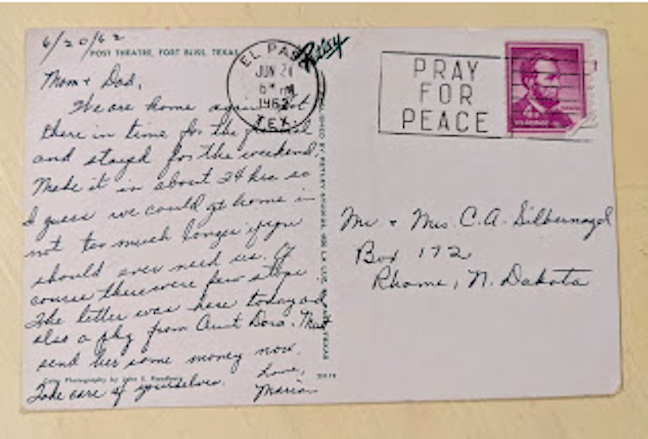 6/20/62
POST THEATRE, FORT BLISS, TEXAS
Mom + Dad,
We are home again. Got
there in time for the funeral
and stayed for the weekend.
Made it in about 24 hrs so
I guess we could get home in
not too much longer if you
should ever need us. Of
course there were few stops
The letter was here today and
also a pkg from Aunt Dora. Must
send her some money now.
Color Photography by John
Take care of yourselves.
Love,
Marian
Petley
EL PASO
JUN 21
PM
1962
TEX.
PRAY
FOR
PEACE
Mr + Mrs. C.A. Silbernagel
Box 172
Rhame, N. Dakota